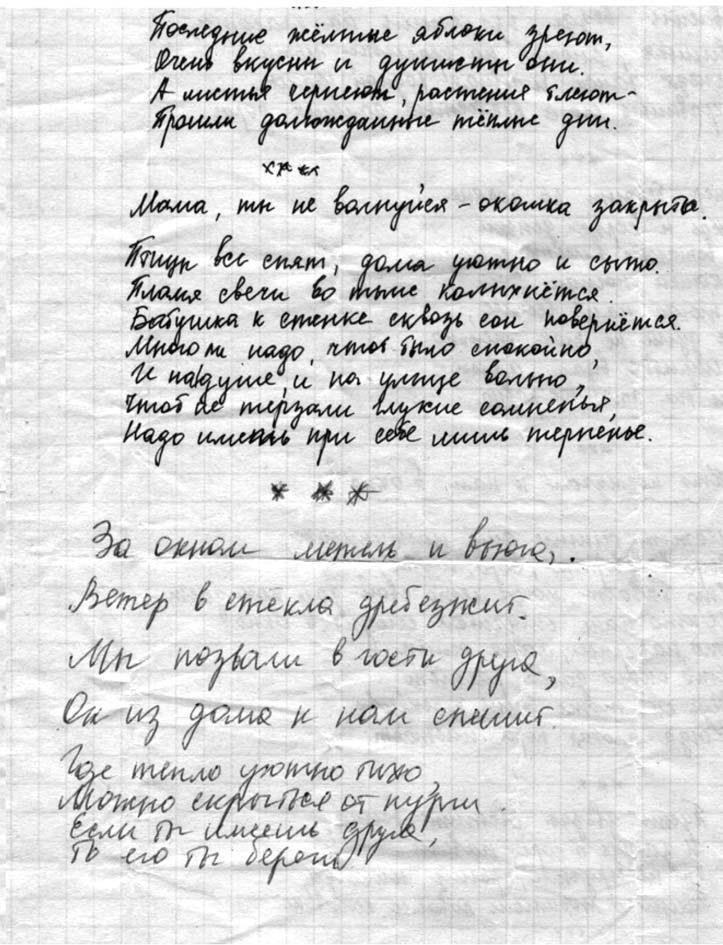 Последние жёлтые яблоки зреют,
Очень вкусны и душисты они.
А листья чернеют, растения тлеют –
Прошли долгожданные тёплые дни.
****
Мама, ты не волнуйся – окошка закрыта.
Птицы все спят, дома уютно и сыто.
Пламя свечи во тьме колыхнётся.
Бабушка к стенке сквозь сон повернётся.
Много ли надо, чтоб было спокойно,
И на душе, и на улице вольно,
Чтоб не терзали глухие сомненья,
Надо иметь при себе лишь терпенье.
* * *
За окном метель и вьюга, .
Ветер в стёкла дребезжит.
Мы позвали в гости друга,
Он из дома к нам спешит.
Где тепло уютно тихо,
Можно скрыться от пурги.
Если ты имеешь друга,
То его ты береги